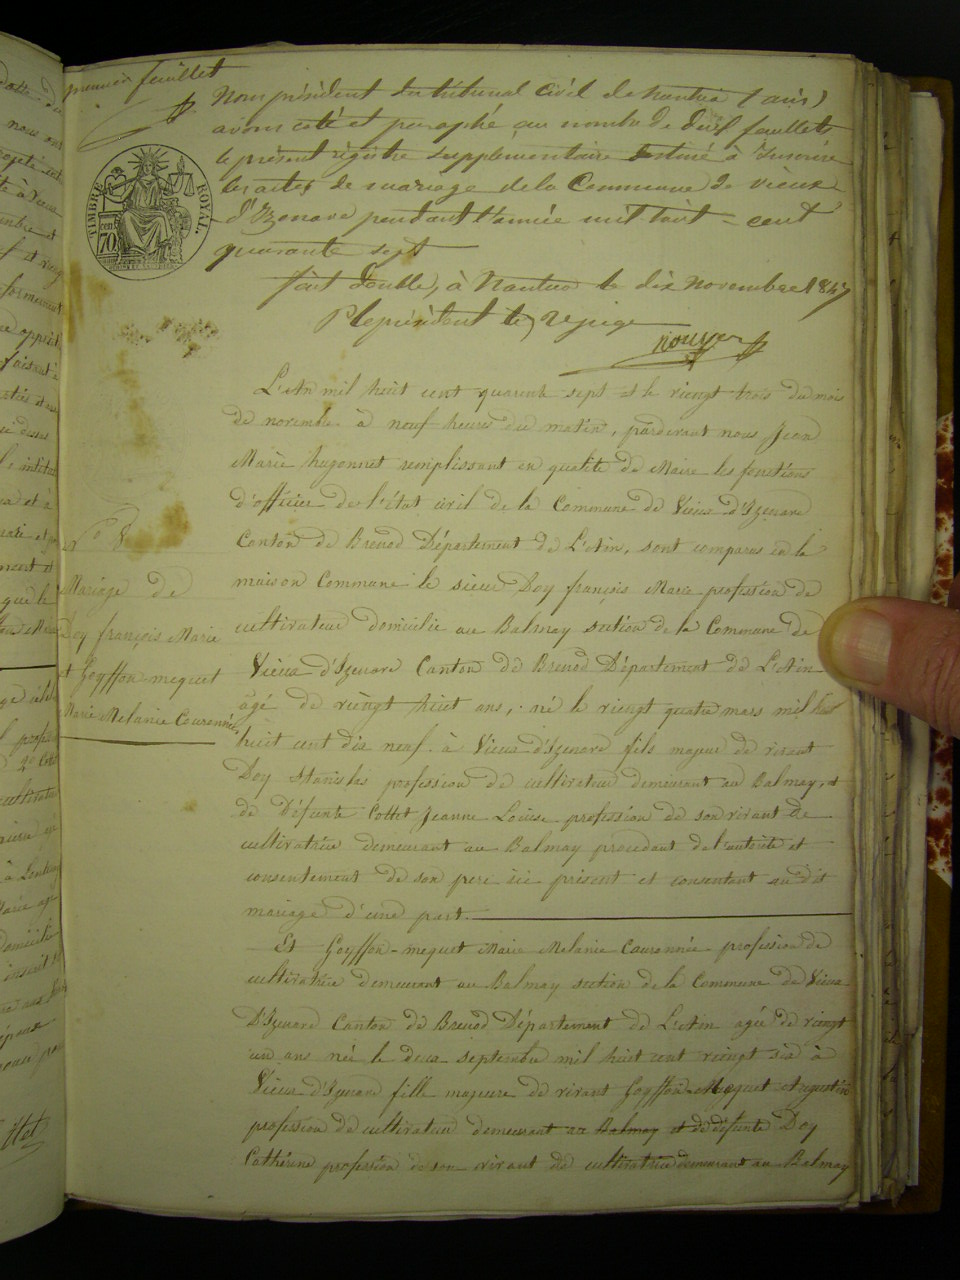 premier feuillet
Nous président du tribunal Civil de Nantua (ain)
avons coté et paraphé au nombre de deux feuillets
le présent régistre supplementaire destiné à Inscrire
les actes de mariage de la Commune de vieux
d'Izenave pendant l'année mil huit - cent
quarante sept
fait double, à Nantua le dix novembre 1847
Le président
Rouyer
TIMBRE ROYAL.
cen 70
L'An mil huit cent quarante sept et le vingt trois du mois
de novembre à neuf heures du matin, pardevant nous Jean
Marie hugonnet remplissant en qualité de Maire les fonctions
d'officier de l'état civil de la Commune de Vieux d'Izenave
Canton de Brenod Département de L'Ain, sont comparus en la
maison Commune le sieur Doy françois Marie profession de
cultivateur domicilié au Balmay section de la Commune de
Vieux d'Izenave Canton de Brenod Département de L'Ain
âgé de vingt huit ans, né le vingt quatre mars mil huit
huit cent dix neuf à Vieux d'Izenave fils majeur de vivant
Doy Stanislas profession de cultivateur demeurant au Balmay, et
de Défunte Cottet Jeanne Louise profession de son vivant de
cultivatrice demeurant au Balmay procedant de l'autorité et
consentement de son pere ici présent et consentant au dit
mariage d'une part.
Et Goyffon-mequet Marie Melanie Couronnée profession de
cultivatrice demeurant au Balmay section de la Commune de Vieux
D'Izenave Canton de Brenod Département de L'Ain agée de vingt
un ans née le deux septembre mil huit cent vingt six à
Vieux d'Izenave fille majeure de vivant Goyffon-Mequet Augustin
profession de cultivateur demeurant au Balmay et de défunte Doy
Cathérine profession de son vivant de cultivatrice demeurant au Balmay
N° 8
Mariage de
Doy françois Marie
et Goyffon-mequet
Marie Mélanie Couronnée